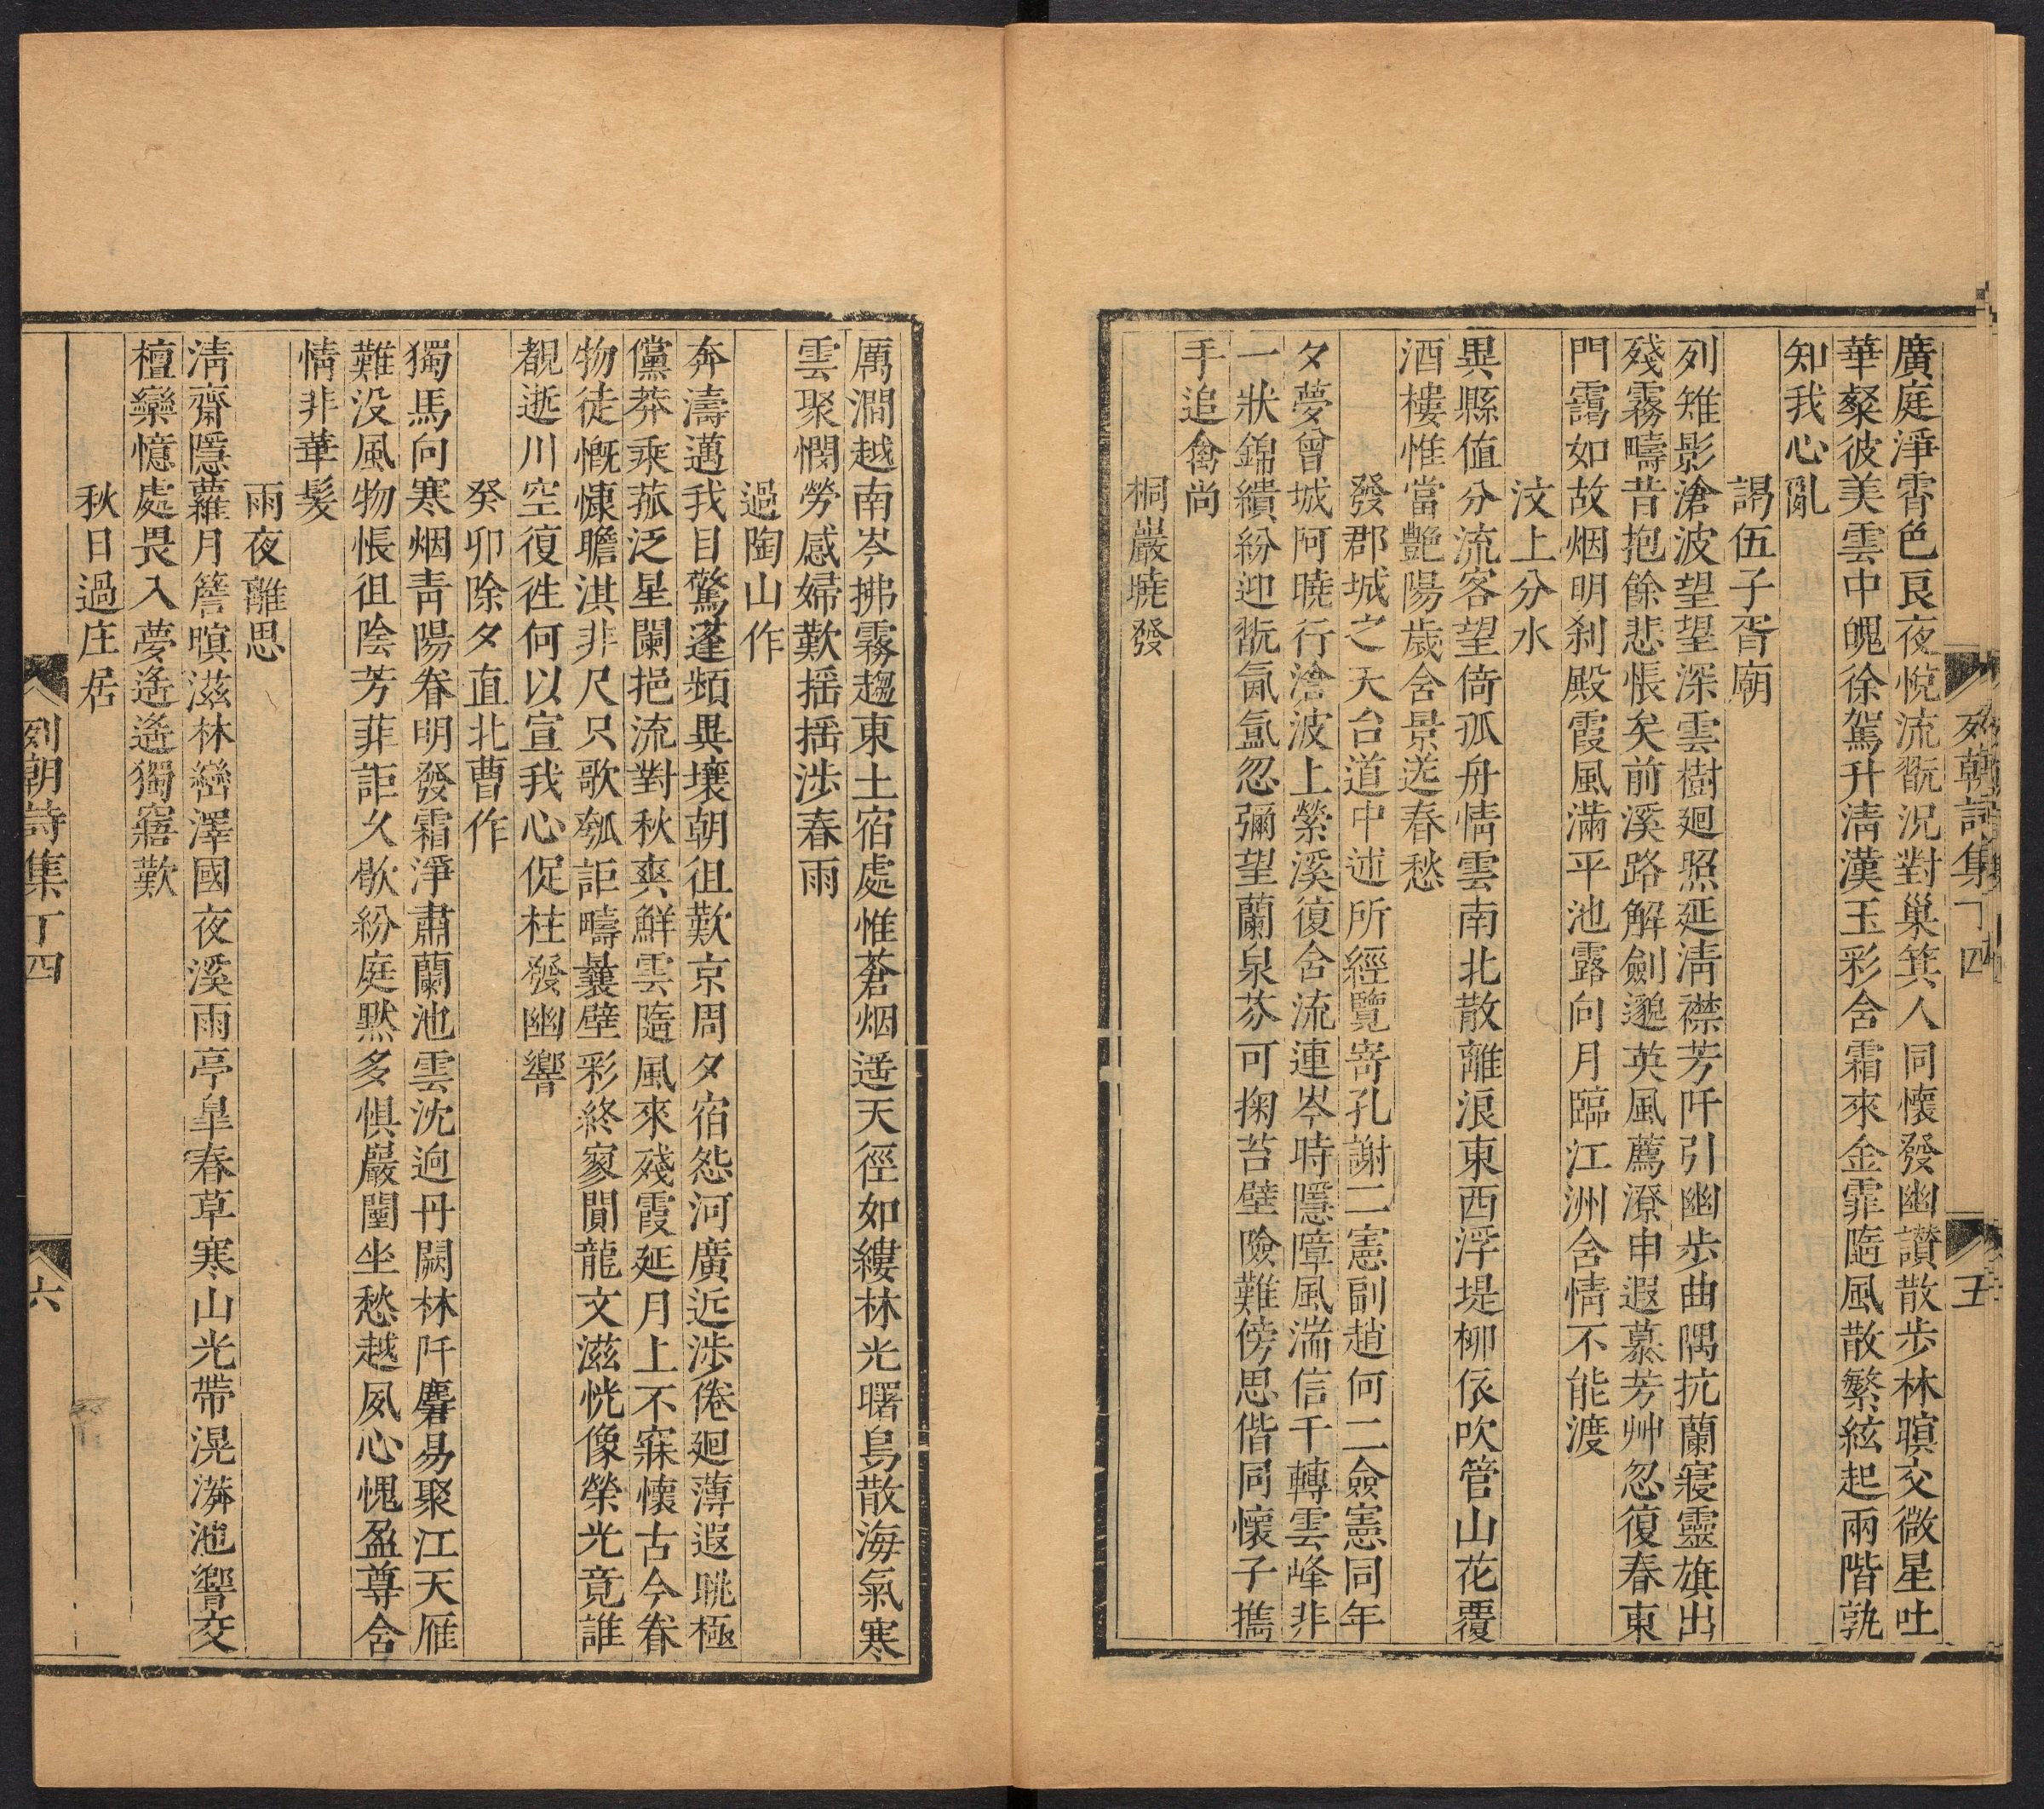 列朝詩集丁四
五
廣庭淨霄色良夜悅流翫況對巢箕人同懷發幽讃散步林暝交微星吐
華粲彼美雲中䰟徐駕升淸漢玉彩含霜來金霏隨風散繁絃起兩階孰
知我心亂
謁伍子胥廟
列雉影滄波望望深雲樹廻照延淸襟芳阡引幽步曲隅抗蘭寢靈旗出
殘霧疇昔抱餘悲悵矣前溪路解劍邈英風薦潦申遐慕芳艸忽復春東
門靄如故烟明刹殿霞風滿平池露向月臨江洲含情不能渡
汶上分水
異縣値分流客望倚孤舟情雲南北散離浪東西浮堤柳依吹管山花覆
酒樓惟當艷陽歲含景送春愁
發郡城之天台道中述所經覽寄孔謝二憲副趙何二僉憲同年
夕夢曾城阿曉行滄波上縈溪復含流連岑時隱障風湍信千轉雲峰非
一狀錦繢紛迎翫氤氳忽彌望蘭泉芬可掬苔壁險難傍思偕同懷子攜
手追禽尚
桐巖曉發
厲澗越南岑拂霧趨東土宿處惟蒼烟遥天徑如縷林光曙鳥散海氣寒
雲聚憫勞感婦歎揺揺涉春雨
過陶山作
奔濤邁我目驚蓬頻異壤朝徂歎京周夕宿怨河廣近涉倦廻薄遐眺極
儻莽乘菰泛星闌挹流對秋爽鮮雲隨風來殘霞延月上不寐懷古今眷
物徒慨慷瞻淇非尺只歌瓠詎疇曩壁彩終寥閴龍文滋恍像榮光竟誰
覩逝川空復徃何以宣我心促柱發幽響
癸卯除夕直北曹作
獨馬向寒烟靑陽眷明發霜淨肅蘭池雲沈逈丹闕林阡麏易聚江天雁
難没風物悵徂陰芳菲詎久歇紛庭默多惧嚴闈坐愁越夙心愧盈尊含
情非華髮
雨夜離思
淸齋隱蘿月簷暝滋林巒澤國夜溪雨亭皐春草寒山光帶滉漭池響交
檀欒憶處畏入夢遙遙獨寤歎
秋日過庄居
列朝詩集丁四
六